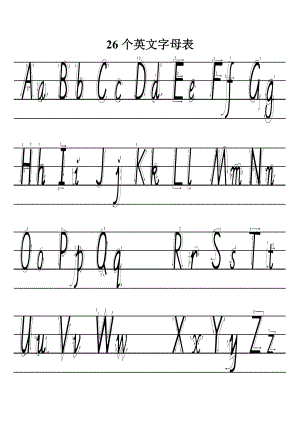 26个英文字母表
Aa Bb Cc Dd Ee Ff Gg
Hh Ii Jj Kk Ll Mm Nn
Oo Pp Qq Rr Ss Tt
Uu Vv Ww Xx Yy Zz